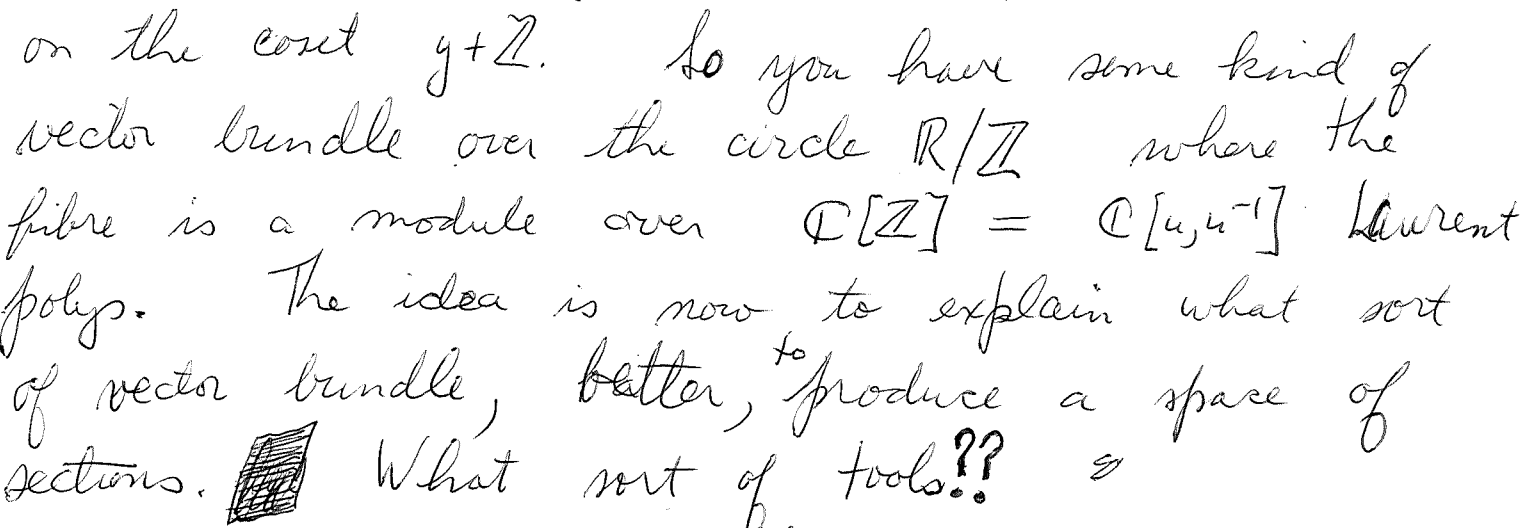 on the coset y+ℤ. So you have some kind of
vector bundle over the circle ℝ/ℤ where the
fibre is a module over ℂ[ℤ] = ℂ[u,u⁻¹] Laurent
polys. The idea is now to explain what sort
of vector bundle, better, to produce a space of
sections. What sort of tools??